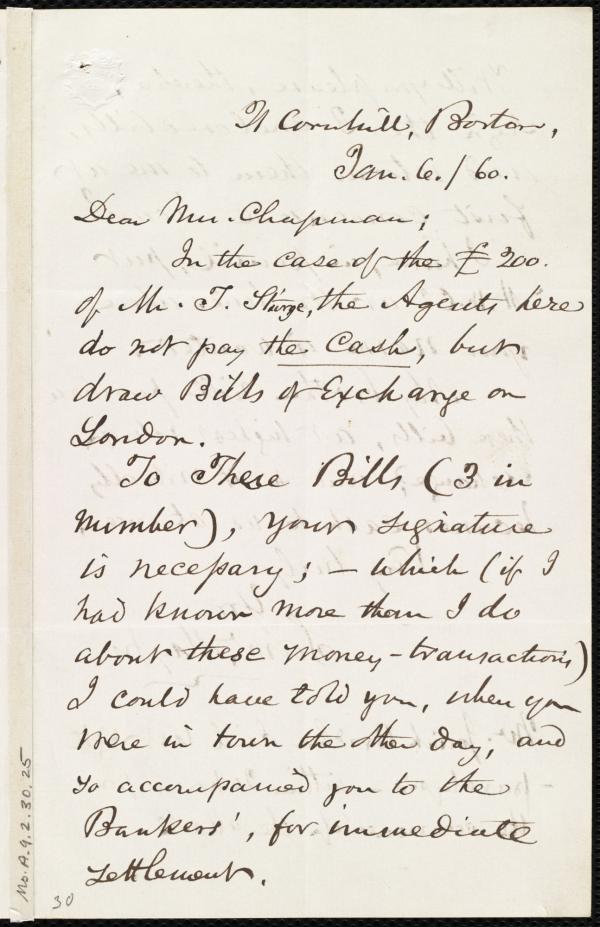 21 Cornhill, Boston,
Jan. 6./60.
Dear Mrs. Chapman;
In the case of the £200.
of Mr. J. Sturge, the Agents here
do not pay the Cash, but
draw Bills of Exchange on
London.
To These Bills (3 in
number), your signature
is necessary; – which (if I
had known more than I do
about these money-transactions)
I could have told you, when you
were in town the other day, and
so accompanied you to the
Bankers', for immediate
settlement.
Ms. A. 9. 2. 30. 25
30